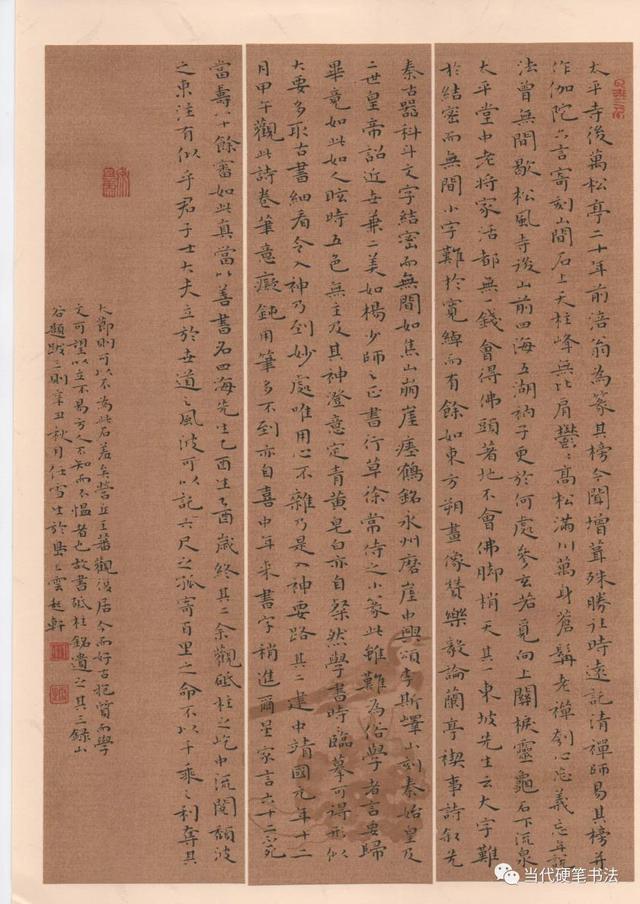 太平寺後萬松亭二十年前涪翁為篆其榜今聞增葺殊勝往時遠託清禪師易其榜并
作伽陀六言寄刻山間石上天柱峰無比肩鬱鬱高松滿川萬身蒼髯老禪刳心忘義忘年說
法曾無間歇松風寺後山前四海五湖衲子更於何處參玄若覓向上關棙靈龜石下流泉
太平堂中老將家活都無一錢會得佛頭著地不會佛脚梢天其一東坡先生云大字難
於結密而無間小字難於寬綽而有餘如東方朔畫像贊樂毅論蘭亭禊事詩叙先
秦古器科斗文字結密而無間如焦山崩崖瘞鶴銘永州磨崖中興頌李斯嶧山刻秦始皇及
二世皇帝詔近世兼二美如楊少師之正書行草徐常侍之小篆此雖難為俗學者言要歸
畢竟如此如人眩時五色無主及其神澄意定青黃皂白亦自粲然學書時臨摹可得形似
大要多取古書細看令入神乃到妙處唯用心不雜乃是入神要路其二建中靖國元年十二
月甲午觀此詩卷筆意癡鈍用筆多不到亦自喜中年來書字稍進爾星家言六十二不死
當壽八十餘審如此真當以善書名四海先生乙酉生乙酉歲終其二余觀砥柱之屹中流閱頹波
之東注有似乎君子士大夫立於世道之風波可以託六尺之孤寄百里之命不以千乘之利奪其
大節則可以不為此石羞矣營丘王蕃觀復居今而好古抱質而學
文可望以立不易方人不知而不慍者也故書砥柱銘遺之其三錄山
谷題跋三則辛丑秋月任雪生於雲起軒
当代硬笔书法